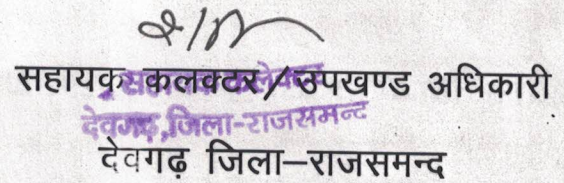 सहायक कलक्टर/उपखण्ड अधिकारी
देवगढ़,जिला-राजसमन्द
देवगढ़ जिला–राजसमन्द